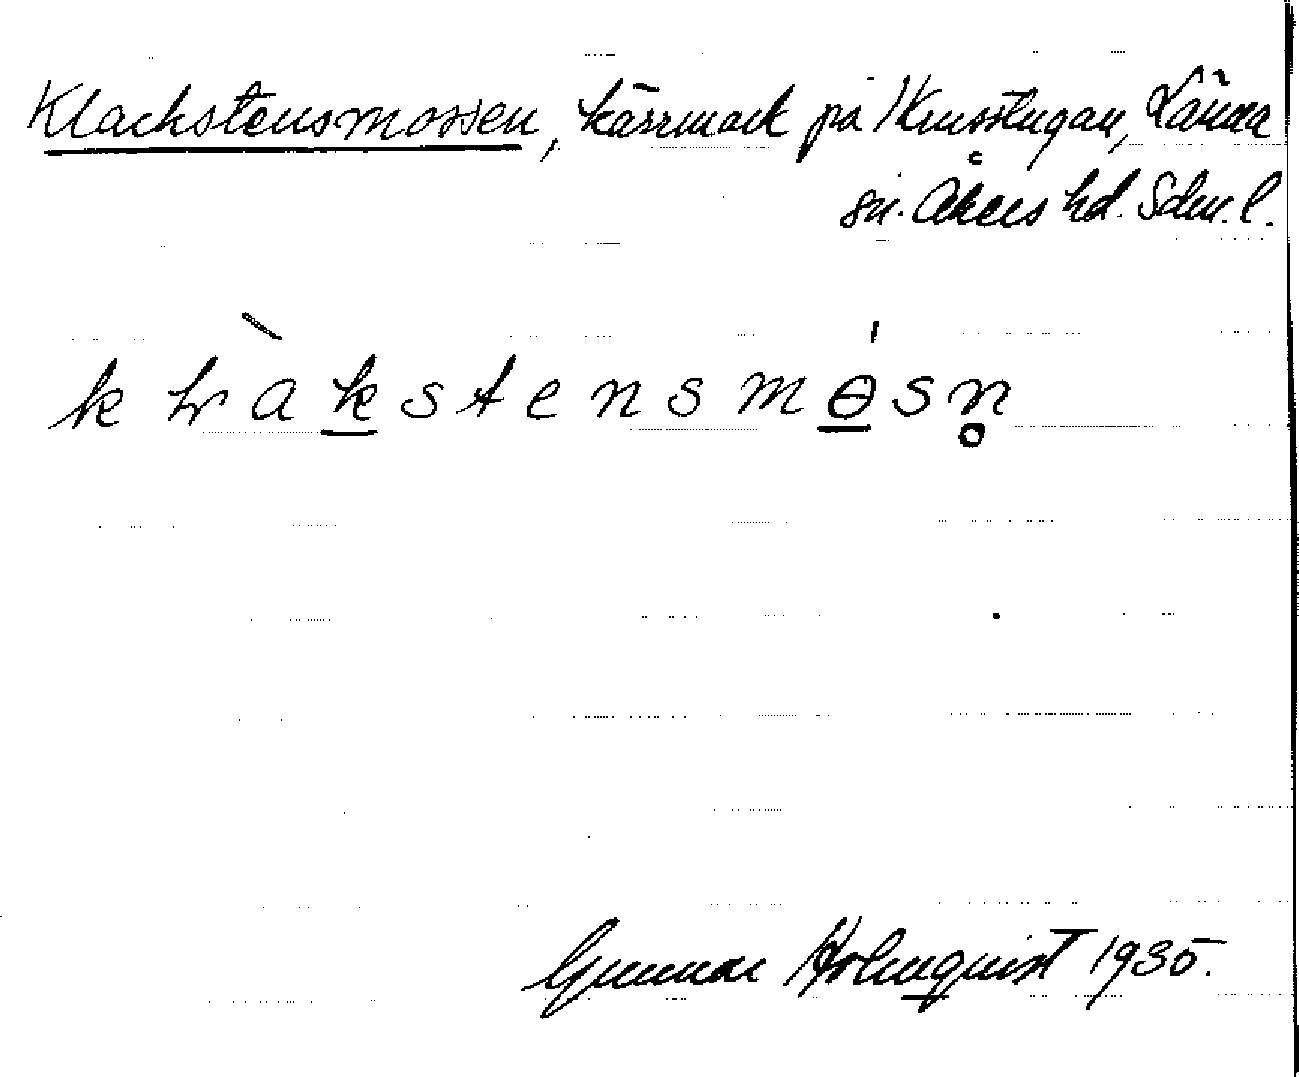 Klackstensmossen, kärrmark på Krusstugan, Länna
sn. Åkers hd. Sdm. l.
k l a k s t e n s m ɵ s n̥
Gunnar Holmquist 1935.